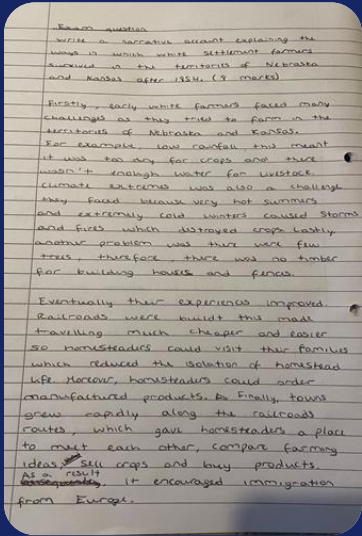 Exam question
Write a narrative account explaining the
ways in which white settlement farmers
survived in the territories of Nebraska
and Kansas after 1854. (8 marks)
Firstly, early white farmers faced many
challenges as they tried to farm in the
territories of Nebraska and Kansas.
For example, low rainfall, this meant
it was too dry for crops and there
wasn't enough water for livestock.
Climate extremes was also a challenge
they faced because very hot summers
and extremely cold winters caused storms
and fires which distroyed crops. Lastly,
another problem was there were few
trees, therefore, there was no timber
for building houses and fences.
Eventually their experiences improved.
Railroads were buildt this made
travelling much cheaper and easier
so homesteaders could visit their families
which reduced the isolation of homestead
life. Moreover, homesteaders could order
manufactured products. Finally, towns
grew rapidly along the railroads
routes, which gave homesteaders a place
to meet each other, compare farming
ideas, sell crops and buy products.
As a result
it encouraged immigration
from Europe.